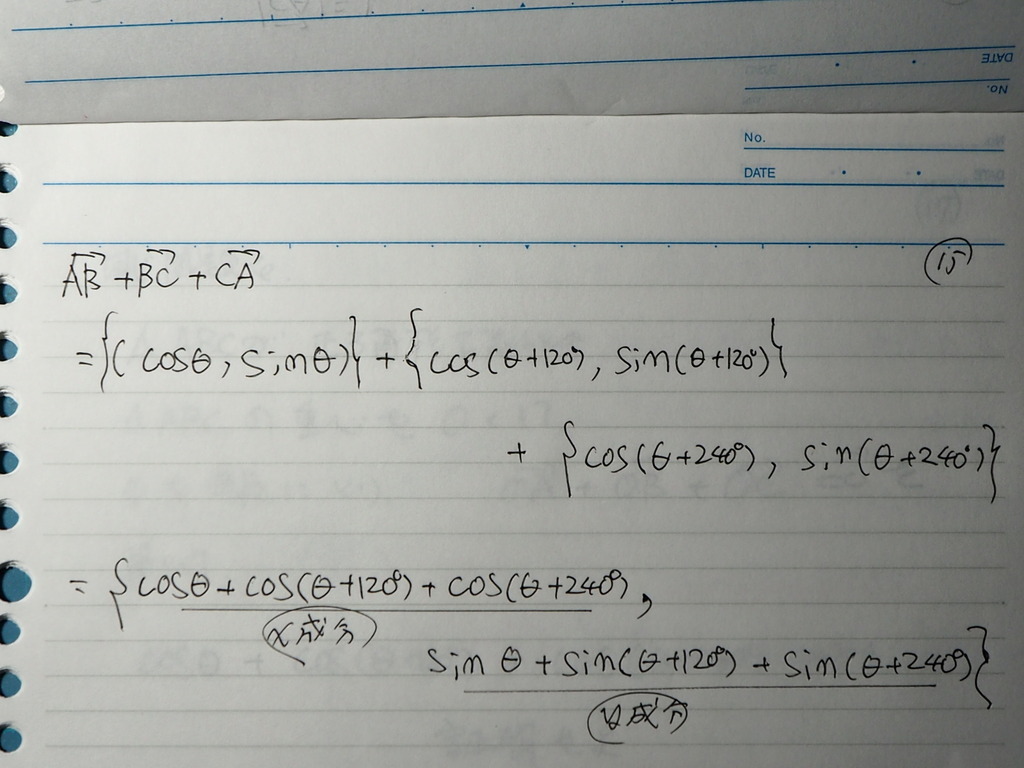 DATE
No.
No.
DATE
⑮
AB→ + BC→ + CA→
= {(cosθ, sinθ)} + {cos(θ+120°), sin(θ+120°)}
+ {cos(θ+240°), sin(θ+240°)}
= {cosθ + cos(θ+120°) + cos(θ+240°),
x成分
sinθ + sin(θ+120°) + sin(θ+240°)}
y成分